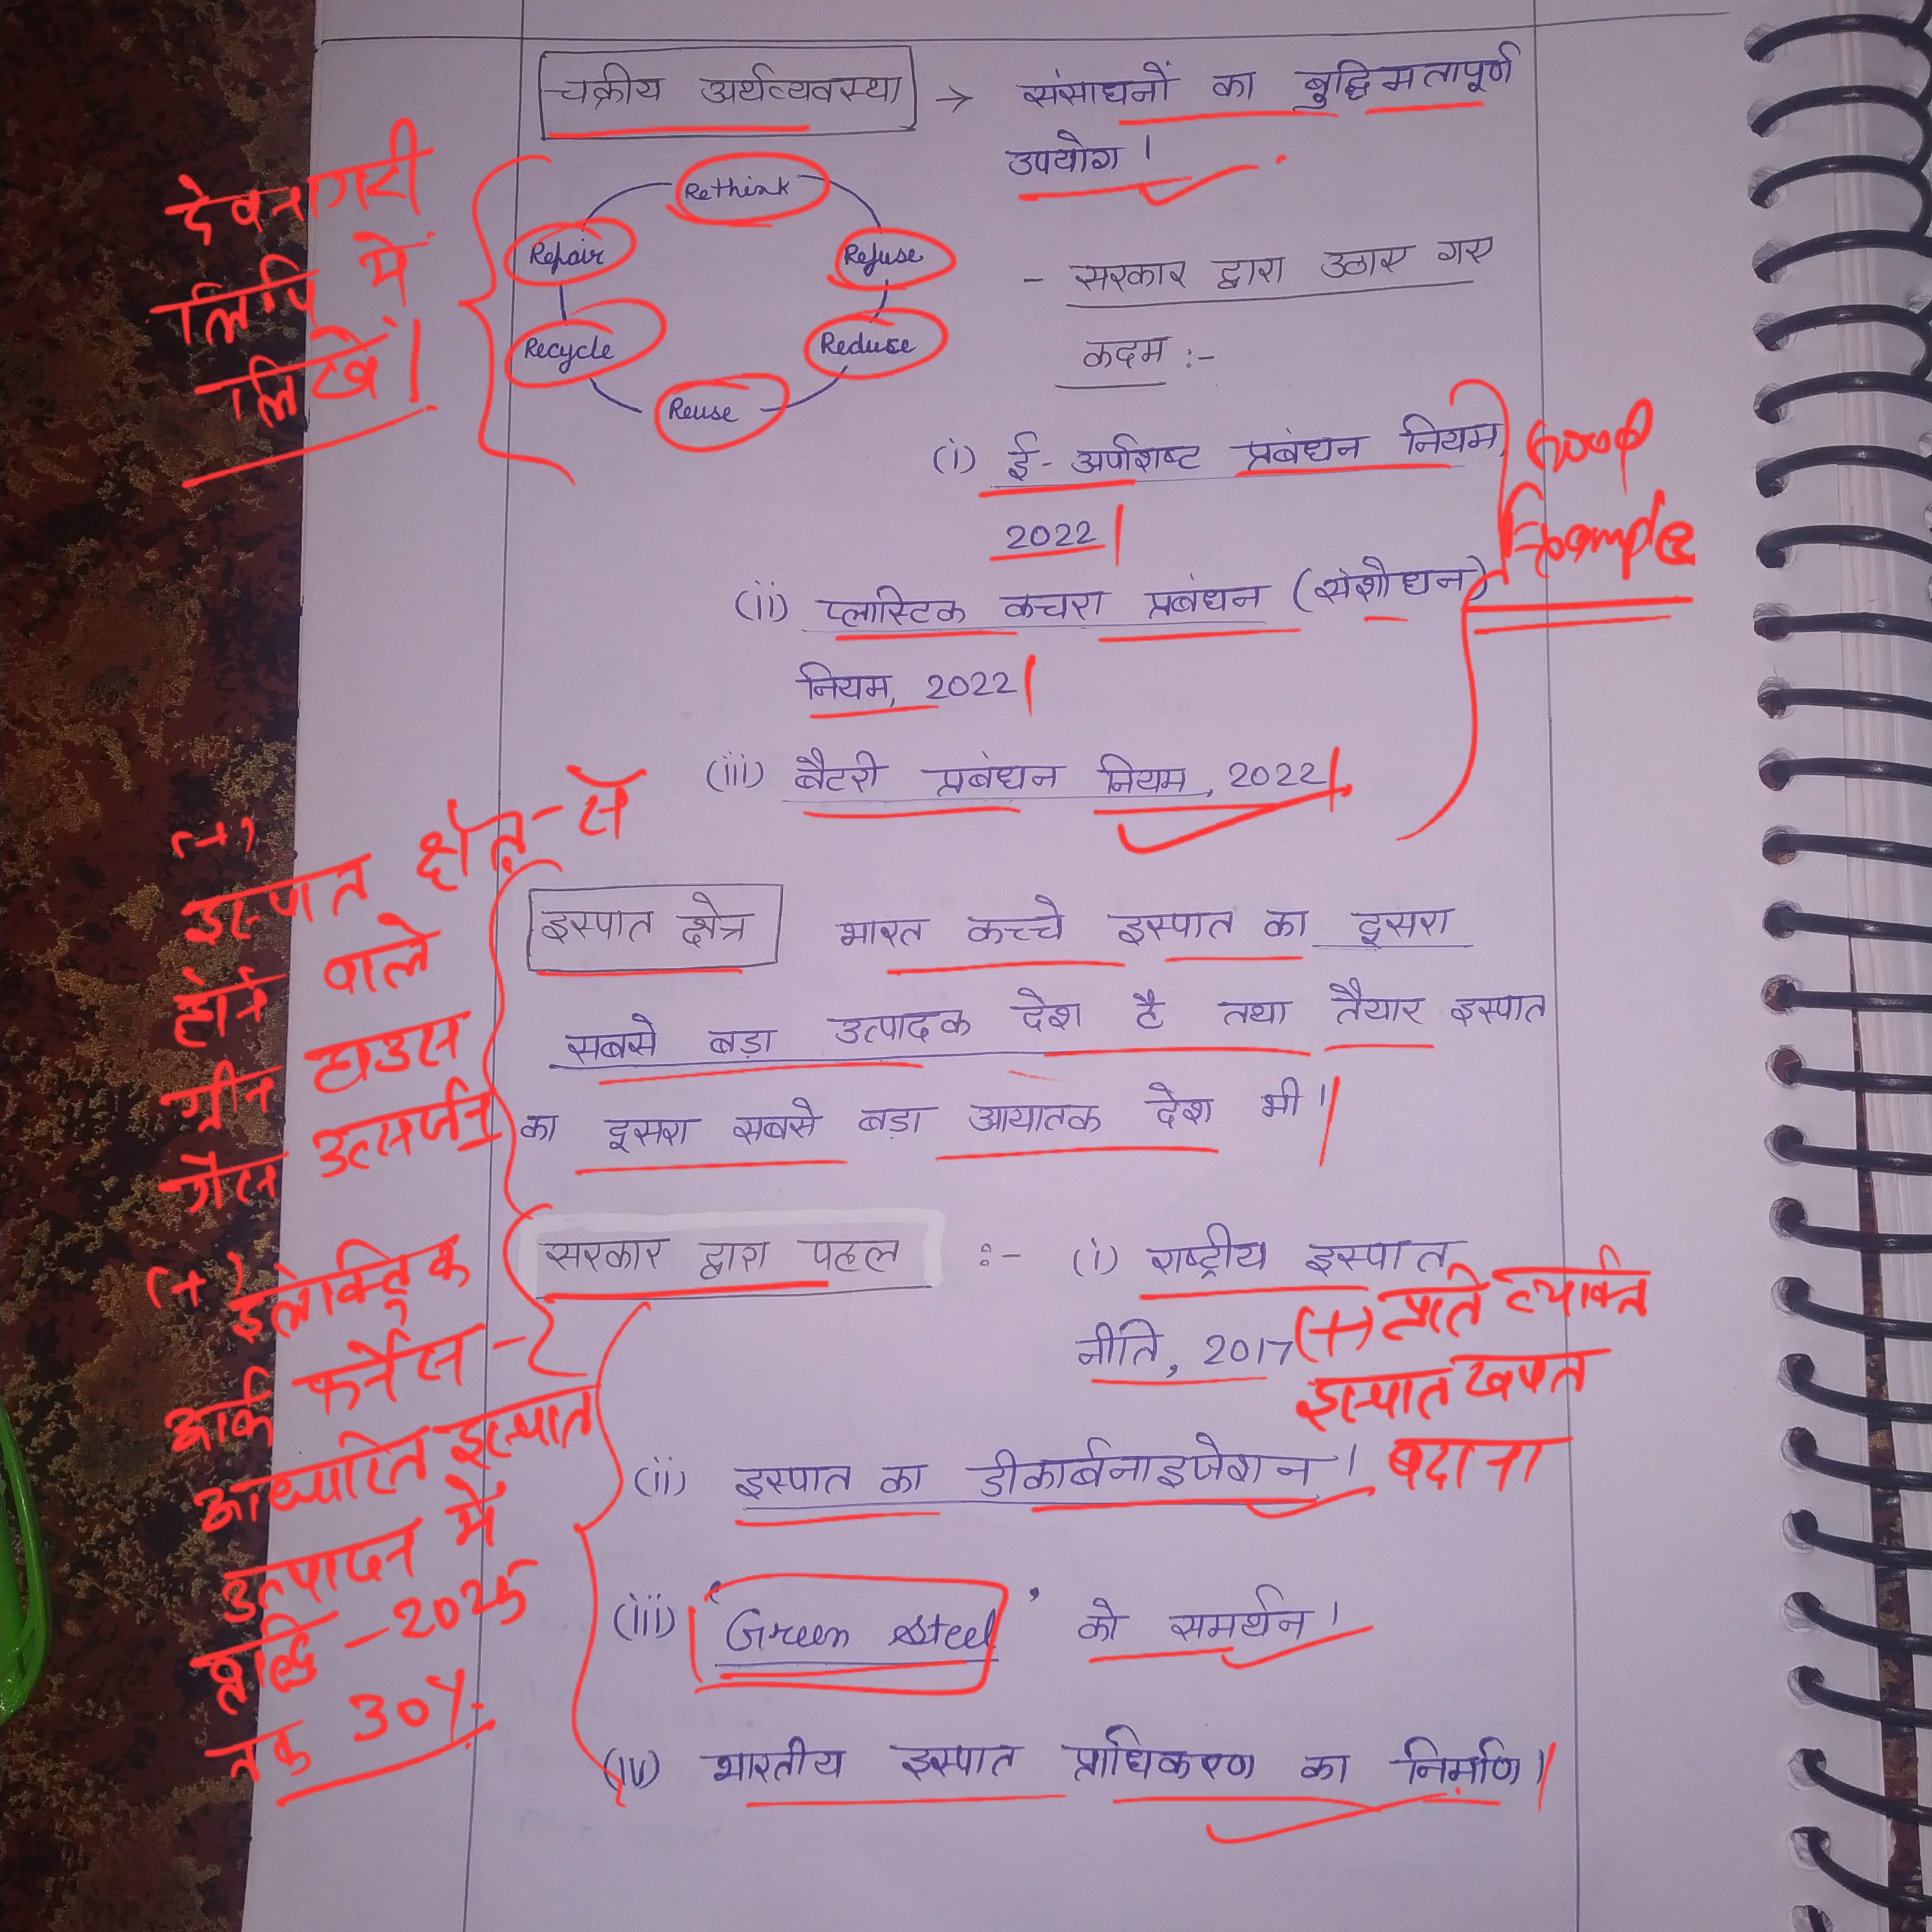 चक्रीय अर्थव्यवस्था → संसाधनों का बुद्धिमतापूर्ण
उपयोग।
देवनागरी
लिपि में
लिखें।
Rethink
Repair
Refuse
Recycle
Reduce
Reuse
- सरकार द्वारा उठाए गए
कदम :-
(i) ई- अपशिष्ट प्रबंधन नियम,
2022
Good
Example
(ii) प्लास्टिक कचरा प्रबंधन (संशोधन)
नियम, 2022
(iii) बैटरी प्रबंधन नियम, 2022
(+)
इस्पात क्षेत्र-से
होने वाले
ग्रीन हाउस
गैस उत्सर्जन
इस्पात क्षेत्र भारत कच्चे इस्पात का दूसरा
सबसे बड़ा उत्पादक देश है तथा तैयार इस्पात
का दूसरा सबसे बड़ा आयातक देश भी।
(+) इलेक्ट्रिक
आर्क फर्नेस-
आधारित इस्पात
उत्पादन में
वृद्धि - 2025
तक 30%
सरकार द्वारा पहल :- (i) राष्ट्रीय इस्पात
नीति, 2017
(+) प्रति व्यक्ति
इस्पात खपत
बढाना
(ii) इस्पात का डीकार्बनाइजेशन।
(iii) 'Green Steel' को समर्थन।
(iv) भारतीय इस्पात प्राधिकरण का निर्माण।